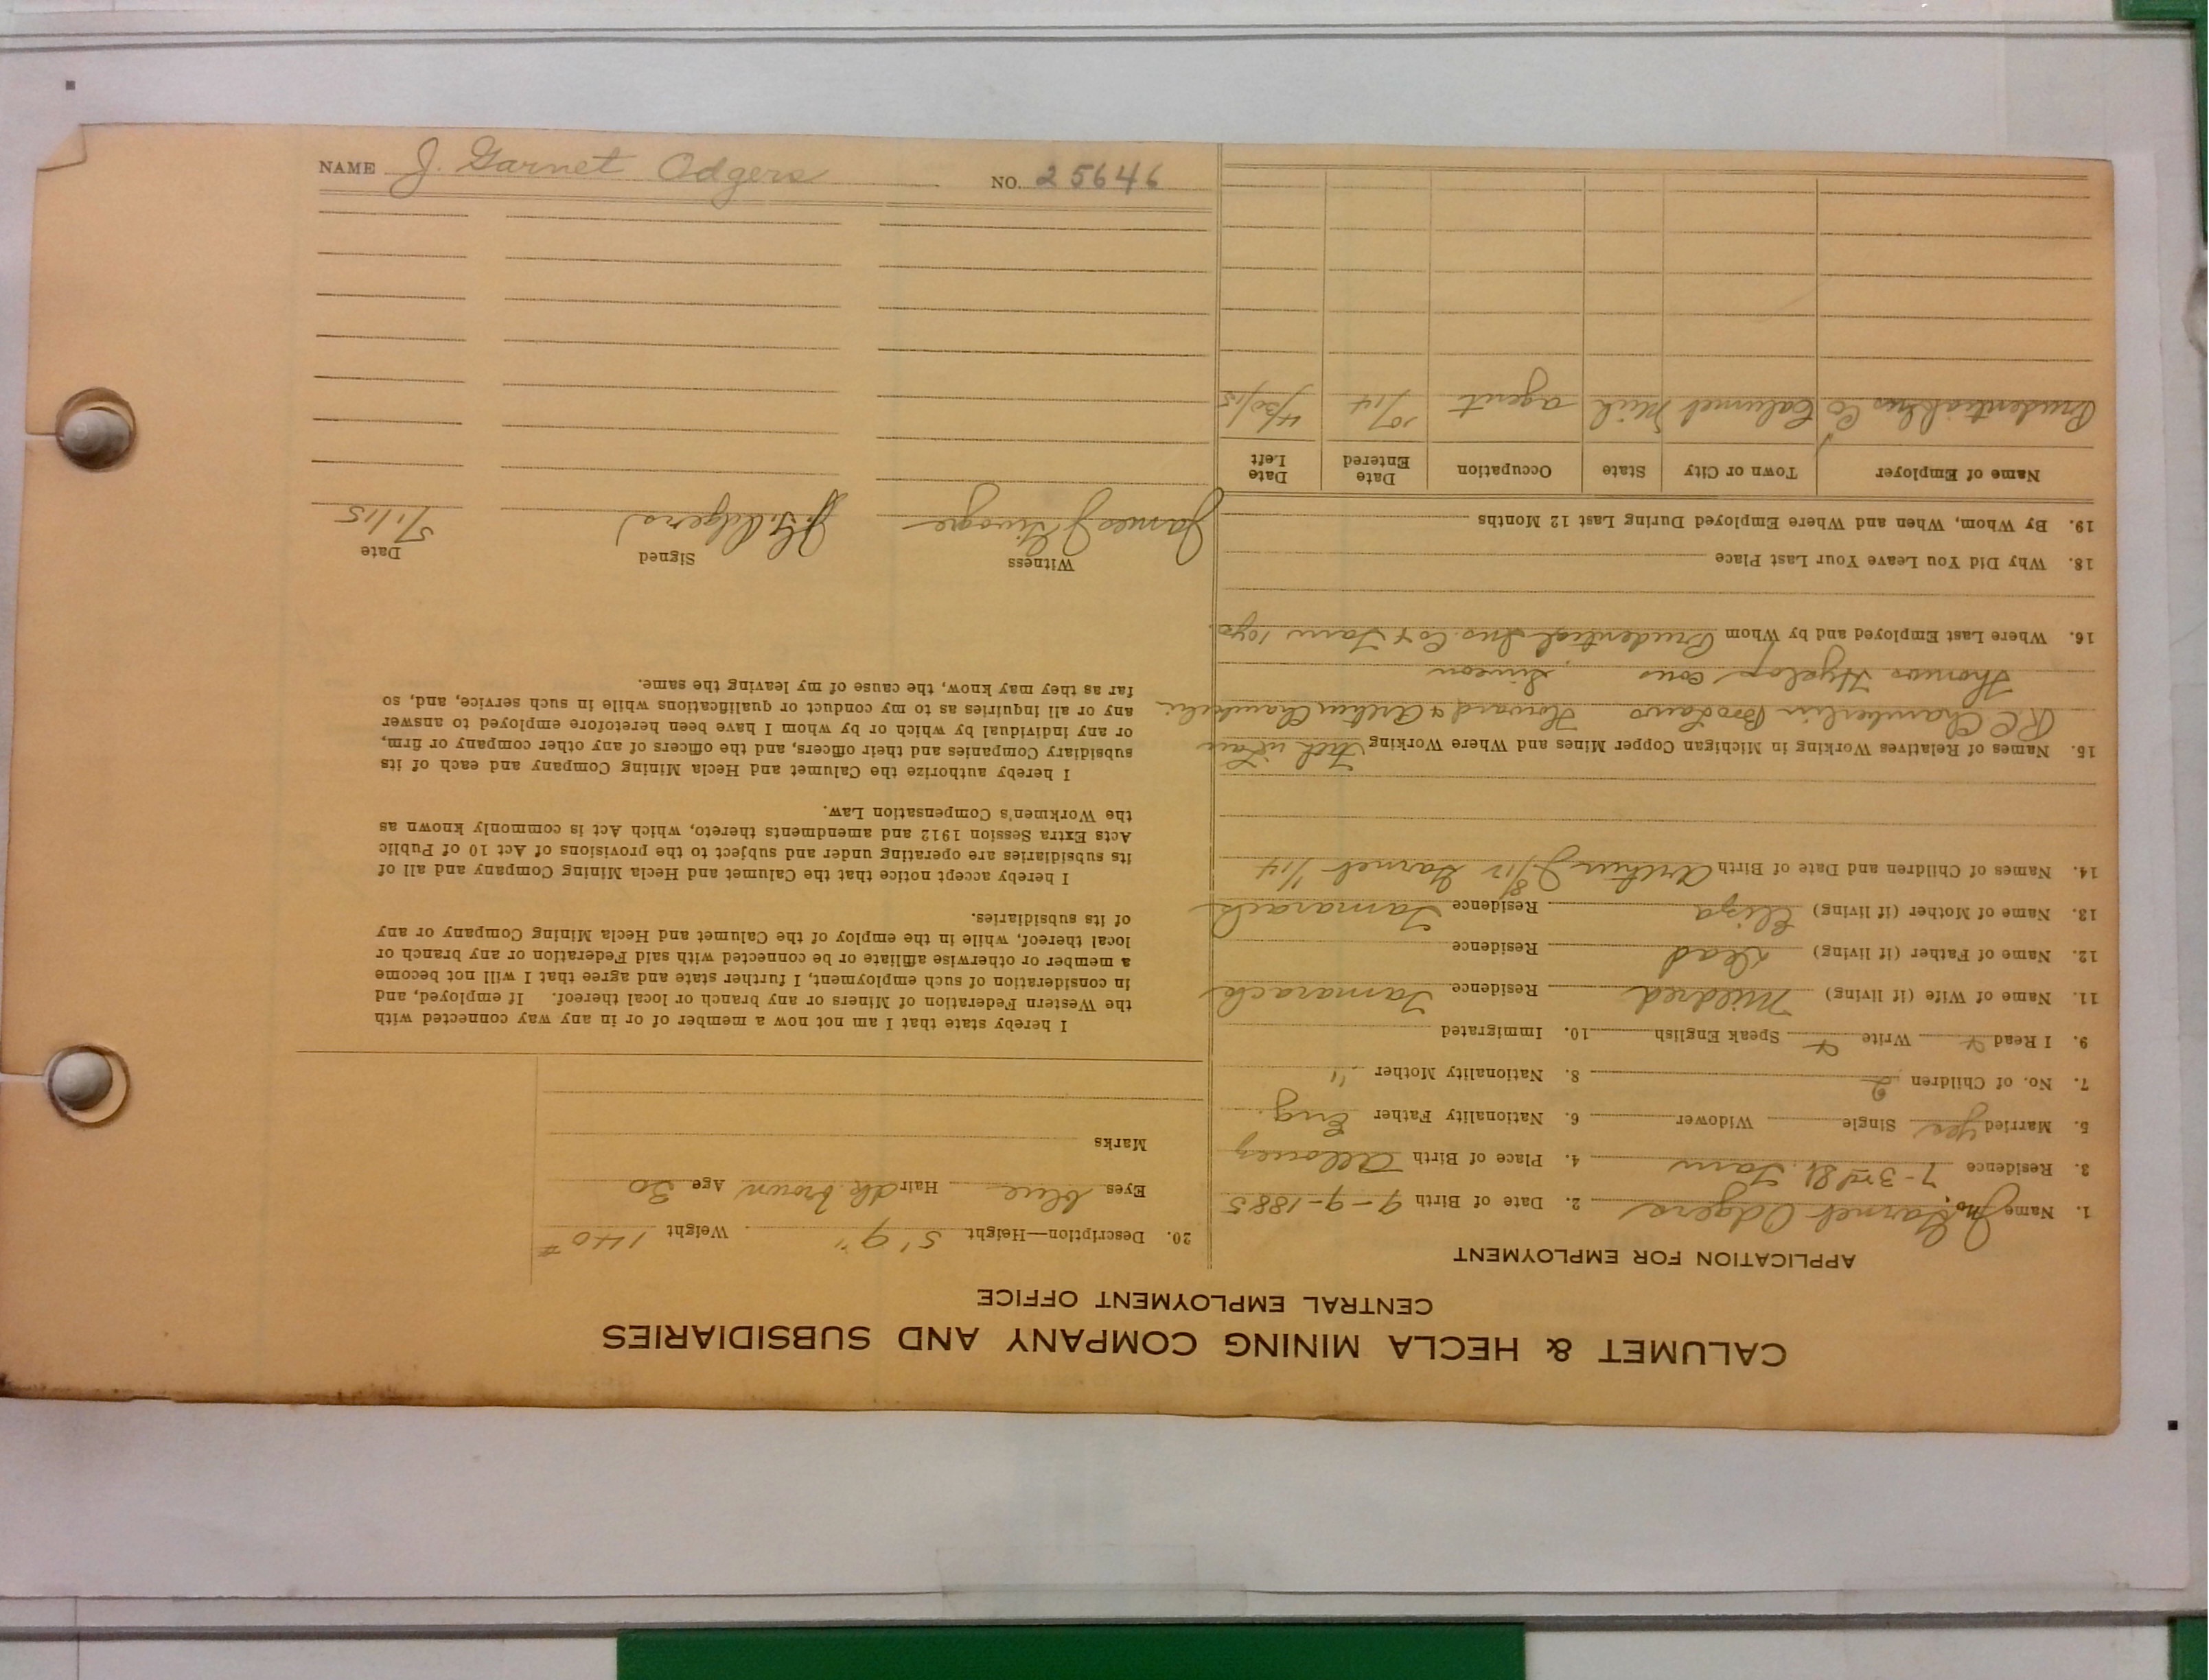 NAME J. Garnet Odgers NO. 25646
CALUMET & HECLA MINING COMPANY AND SUBSIDIARIES
CENTRAL EMPLOYMENT OFFICE
APPLICATION FOR EMPLOYMENT
1. Name Jno. Garnet Odgers 2. Date of Birth 9-9-1885
3. Residence 7-3rd St. Tam 4. Place of Birth Allouez
5. Married yes Single Widower 6. Nationality Father Eng.
7. No. of Children 2 8. Nationality Mother "
9. I Read Write Speak English 10. Immigrated
11. Name of Wife (if living) Mildred Residence Tamarack
12. Name of Father (if living) Dead Residence
13. Name of Mother (if living) Eliza Residence Tamarack
14. Names of Children and Date of Birth Arthur J 8/12 Garnet 1/14
15. Names of Relatives Working in Michigan Copper Mines and Where Working
R C Chamberlin Bro Laws Howard & Arthur Chamberlin
Thomas Hyslop cous
16. Where Last Employed and by Whom Prudential Ins. Co & Tam 10 yrs.
18. Why Did You Leave Your Last Place
19. By Whom, When and Where Employed During Last 12 Months
Name of Employer Town or City State Occupation Date Entered Date Left
Prudential Ins Co Calumet Mich agent 10/14 4/30/15
20. Description—Height 5' 9" Weight 140 #
Eyes blue Hair dk. brown Age 30
Marks
I hereby state that I am not now a member of or in any way connected with
the Western Federation of Miners or any branch or local thereof. If employed, and
in consideration of such employment, I further state and agree that I will not become
a member or otherwise affiliate or be connected with said Federation or any branch or
local thereof, while in the employ of the Calumet and Hecla Mining Company or any
of its subsidiaries.
I hereby accept notice that the Calumet and Hecla Mining Company and all of
its subsidiaries are operating under and subject to the provisions of Act 10 of Public
Acts Extra Session 1912 and amendments thereto, which Act is commonly known as
the Workmen's Compensation Law.
I hereby authorize the Calumet and Hecla Mining Company and each of its
subsidiary Companies and their officers, and the officers of any other company or firm,
or any individual by which or by whom I have been heretofore employed to answer
any or all inquiries as to my conduct or qualifications while in such service, and, so
far as they may know, the cause of my leaving the same.
Witness Signed Date
James J J. G. Odgers 5/1/15